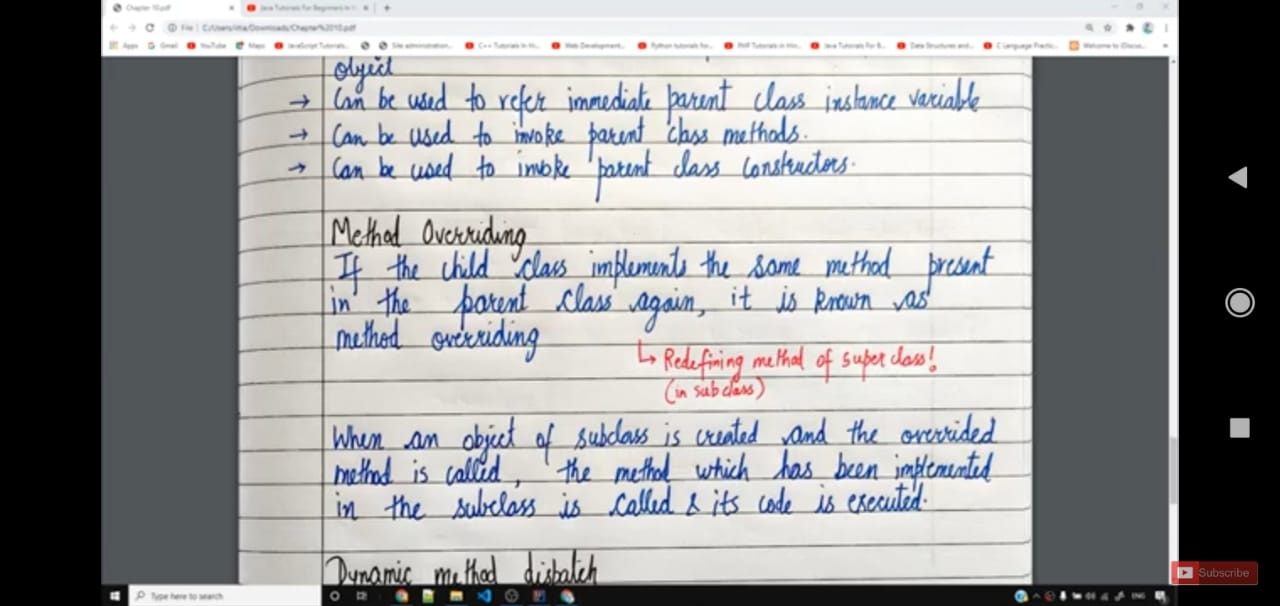 Chapter 10.pdf
Java Tutorials For Beginners In
File
C:/Users/
/Downloads/Chapter%2010.pdf
Apps
Gmail
YouTube
Maps
JavaScript Tutorials...
Site administration...
C++ Tutorials In Hi...
Web Development...
Python tutorials for...
PHP Tutorials in Hin...
Java Tutorials For B...
Data Structures and...
C Language Practic...
Welcome to
object
→ Can be used to refer immediate parent class instance variable
→ Can be used to invoke parent class methods.
→ Can be used to invoke parent class constructors.
Method Overriding
If the child class implements the same method present
in the parent class again, it is known as
method overriding
↳ Redefining method of super class!
(in subclass)
When an object of subclass is created and the overrided
method is called, the method which has been implemented
in the subclass is called & its code is executed.
Dynamic method dispatch
Type here to search
ENG
Subscribe